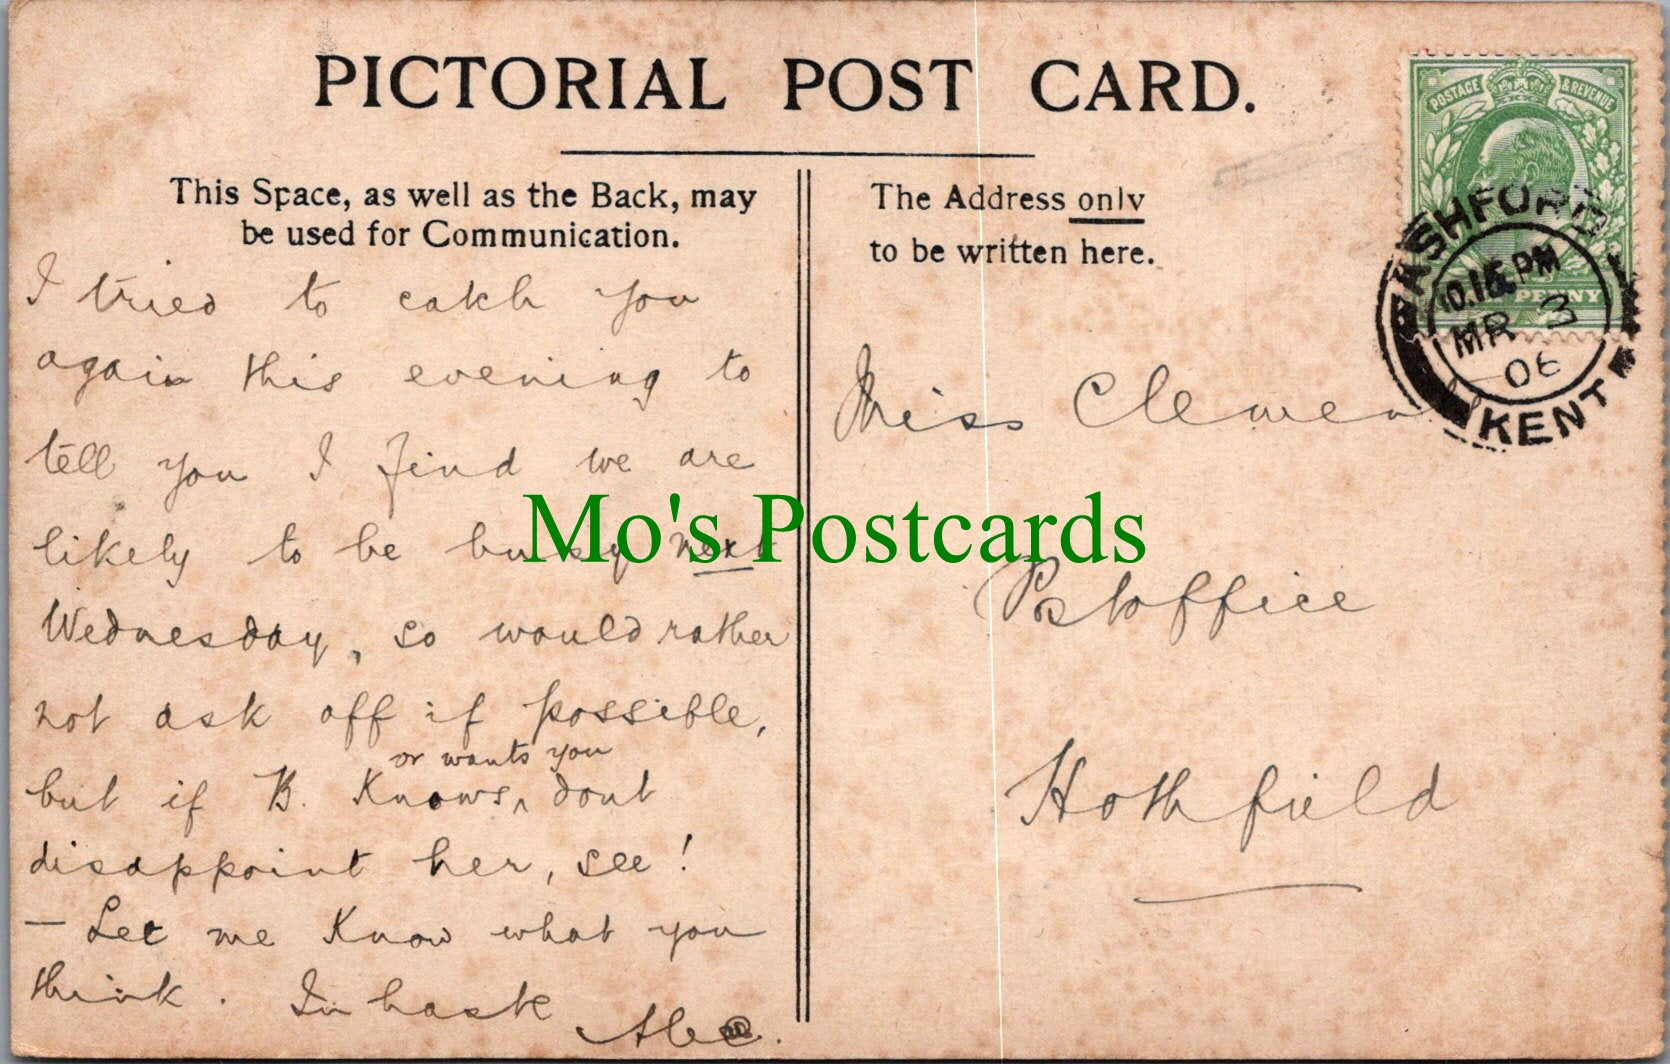 PICTORIAL POST CARD.
This Space, as well as the Back, may
be used for Communication.
The Address only
to be written here.
I tried to catch you
again this evening to
tell you I find we are
likely to be busy next
Wednesday, so would rather
not ask off if possible,
or wants you
but if B. Knows, ^ dont
disappoint her, see!
— Let me Know what you
think. In haste
Alec.
Miss Clement
Postoffice
Hothfield
POSTAGE & REVENUE
PENNY
ASHFORD
10.15 PM
MR 3
06
KENT
Mo's Postcards